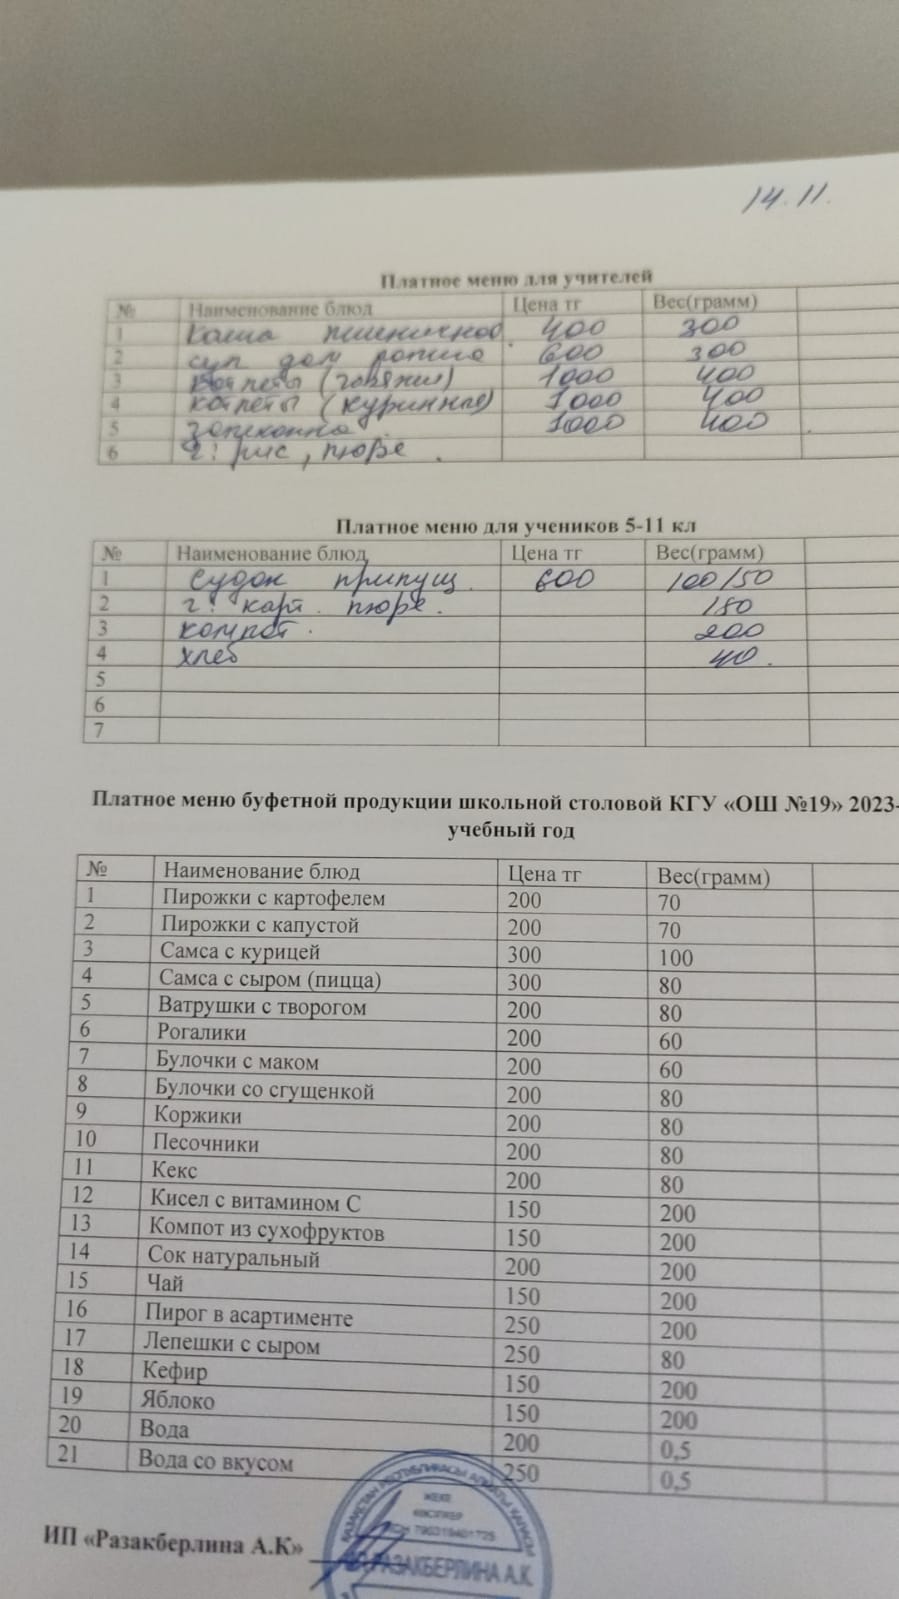 14.11.
Платное меню для учителей
№ Наименование блюд Цена тг Вес(грамм)
1 Каша пшеничное 400 300
2 суп дом лапша 600 300
3 котлеты (говяжи) 1000 400
4 котлеты (куринные) 1000 400
5 запеканка 1000 400
6 г: рис, пюре.
Платное меню для учеников 5-11 кл
№ Наименование блюд Цена тг Вес(грамм)
1 судак припущ. 600 100/50
2 г: карт. пюре. 150
3 компот. 200
4 хлеб 40.
5
6
7
Платное меню буфетной продукции школьной столовой КГУ «ОШ №19» 2023-
учебный год
№ Наименование блюд Цена тг Вес(грамм)
1 Пирожки с картофелем 200 70
2 Пирожки с капустой 200 70
3 Самса с курицей 300 100
4 Самса с сыром (пицца) 300 80
5 Ватрушки с творогом 200 80
6 Рогалики 200 60
7 Булочки с маком 200 60
8 Булочки со сгущенкой 200 80
9 Коржики 200 80
10 Песочники 200 80
11 Кекс 200 80
12 Кисел с витамином С 150 200
13 Компот из сухофруктов 150 200
14 Сок натуральный 200 200
15 Чай 150 200
16 Пирог в асартименте 250 200
17 Лепешки с сыром 250 80
18 Кефир 150 200
19 Яблоко 150 200
20 Вода 200 0,5
21 Вода со вкусом 250 0,5
ИП «Разакберлина А.К»
ҚАЗАҚСТАН РЕСПУБЛИКАСЫ АЛМАТЫ ҚАЛАСЫ
ЖЕКЕ
КӘСІПКЕР
РАЗАКБЕРЛИНА А.К.